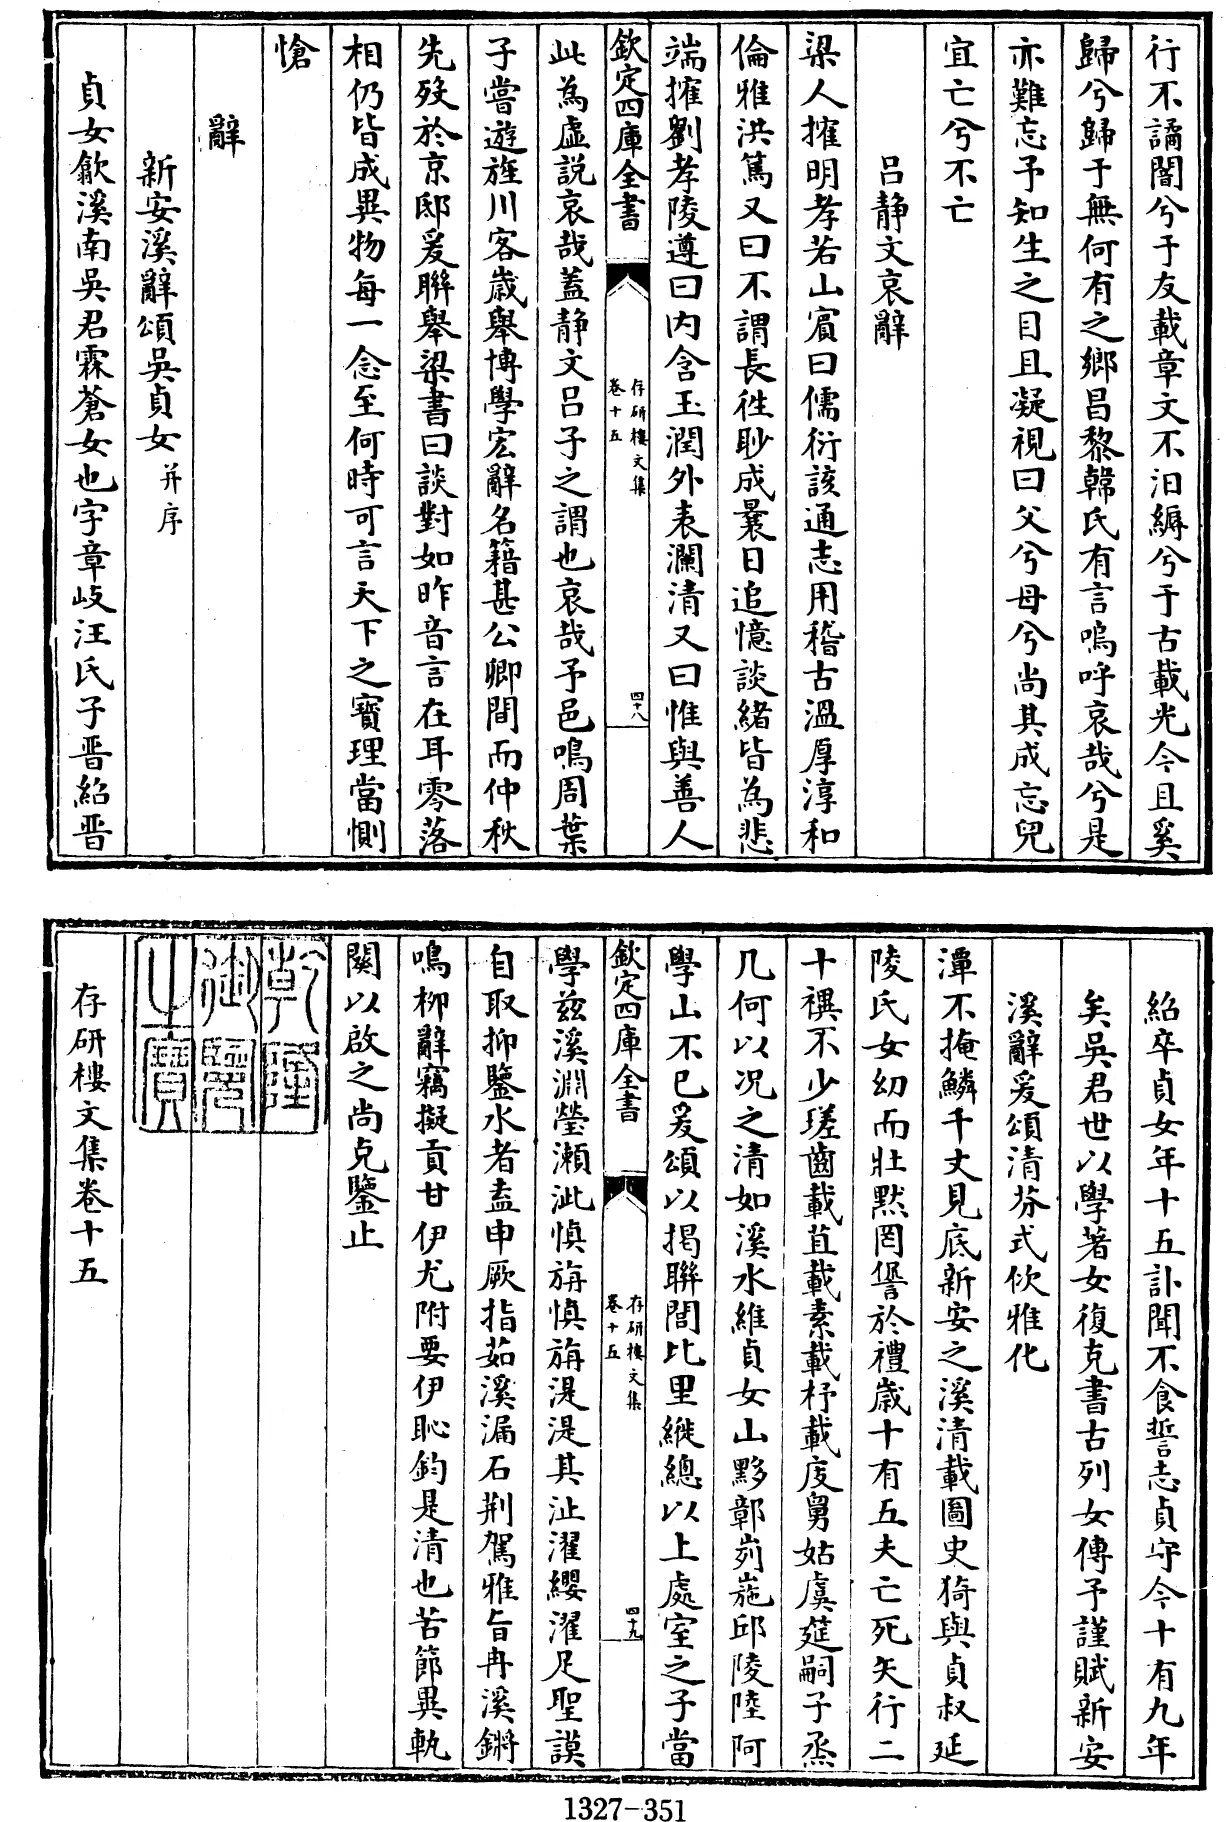 行不譎闇兮于友載章文不汨縟兮于古載光今且奚
歸兮歸于無何有之鄉昌黎韓氏有言嗚呼哀哉兮是
亦難忘予知生之目且凝視曰父兮母兮尚其成忘兒
宜亡兮不亡
呂静文哀辭
梁人擁明孝若山賓曰儒衍該通志用稽古温厚淳和
倫雅洪篤又曰不謂長徃眇成曩日追憶談緒皆為悲
端擁劉孝陵遵曰内含玉潤外表瀾清又曰惟與善人
欽定四庫全書
存研樓文集
卷十五
四十八
此為虛説哀哉蓋静文呂子之謂也哀哉予邑鳴周葉
子嘗遊旌川客歲舉博學宏辭名籍甚公卿間而仲秋
先殁於京邸爰聨舉梁書曰談對如昨音言在耳零落
相仍皆成異物每一念至何時可言天下之寶理當惻
愴
辭
新安溪辭頌吳貞女并序
貞女歙溪南吳君霖蒼女也字章岐汪氏子晋紹晋
紹卒貞女年十五訃聞不食誓志貞守今十有九年
矣吳君世以學著女復克書古列女傳予謹賦新安
溪辭爰頌清芬式佽雅化
潭不掩鱗千丈見底新安之溪清載圖史猗與貞叔延
陵氏女幼而壯黙罔諐於禮歲十有五夫亡死矢行二
十禩不少瑳齒載苴載素載杼載度舅姑虞筵嗣子烝
几何以况之清如溪水維貞女山黟鄣峛崺邱陵陸阿
學山不已爰頌以揭聨閭比里縰總以上處室之子當
欽定四庫全書
存研樓文集
卷十五
四十九
學兹溪淵瑩瀬泚慎旃慎旃湜湜其沚濯纓濯足聖謨
自取抑鑒水者盍申厥指茹溪漏石荆駕雅旨冉溪鏘
鳴栁辭竊擬貢甘伊尤附要伊恥鈞是清也苦節異軌
闋以啟之尚克鑒止
乾隆
御覽
之寶
存研樓文集卷十五
1327-351